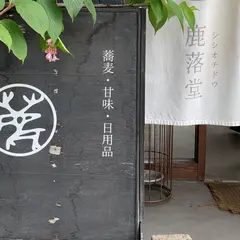 蕎麦・甘味・日用品
鹿落堂
シシオチドウ